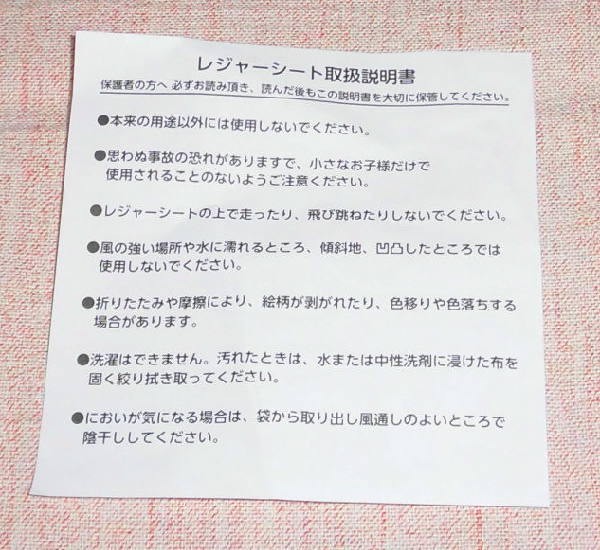 レジャーシート取扱説明書
保護者の方へ 必ずお読み頂き、読んだ後もこの説明書を大切に保管してください。
●本来の用途以外には使用しないでください。
●思わぬ事故の恐れがありますで、小さなお子様だけで
使用されることのないようご注意ください。
●レジャーシートの上で走ったり、飛び跳ねたりしないでください。
●風の強い場所や水に濡れるところ、傾斜地、凹凸したところでは
使用しないでください。
●折りたたみや摩擦により、絵柄が剥がれたり、色移りや色落ちする
場合があります。
●洗濯はできません。汚れたときは、水または中性洗剤に浸けた布を
固く絞り拭き取ってください。
●においが気になる場合は、袋から取り出し風通しのよいところで
陰干ししてください。